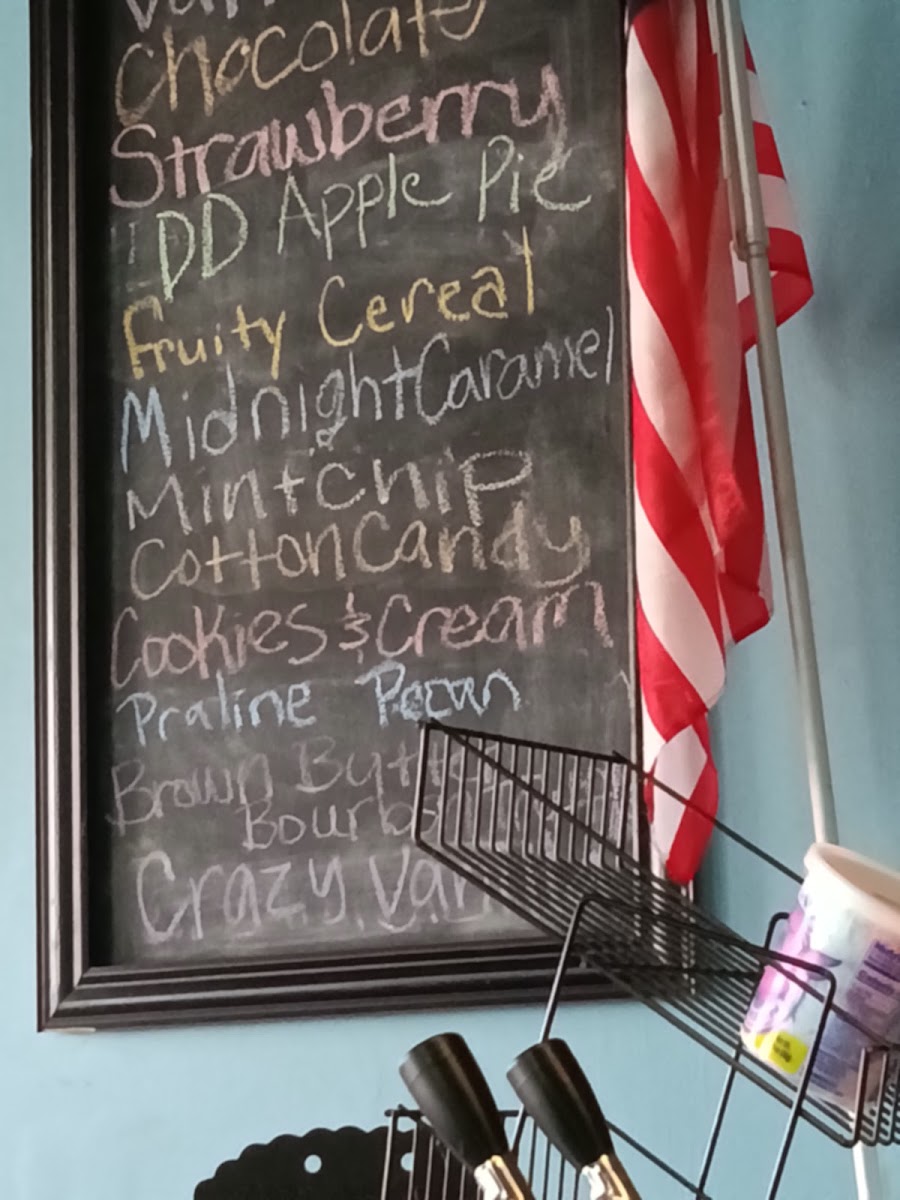 Chocolate
Strawberry
DD Apple Pie
Fruity Cereal
Midnight Caramel
Mint chip
Cotton Candy
Cookies & Cream
Praline Pecan
Brown
Crazy